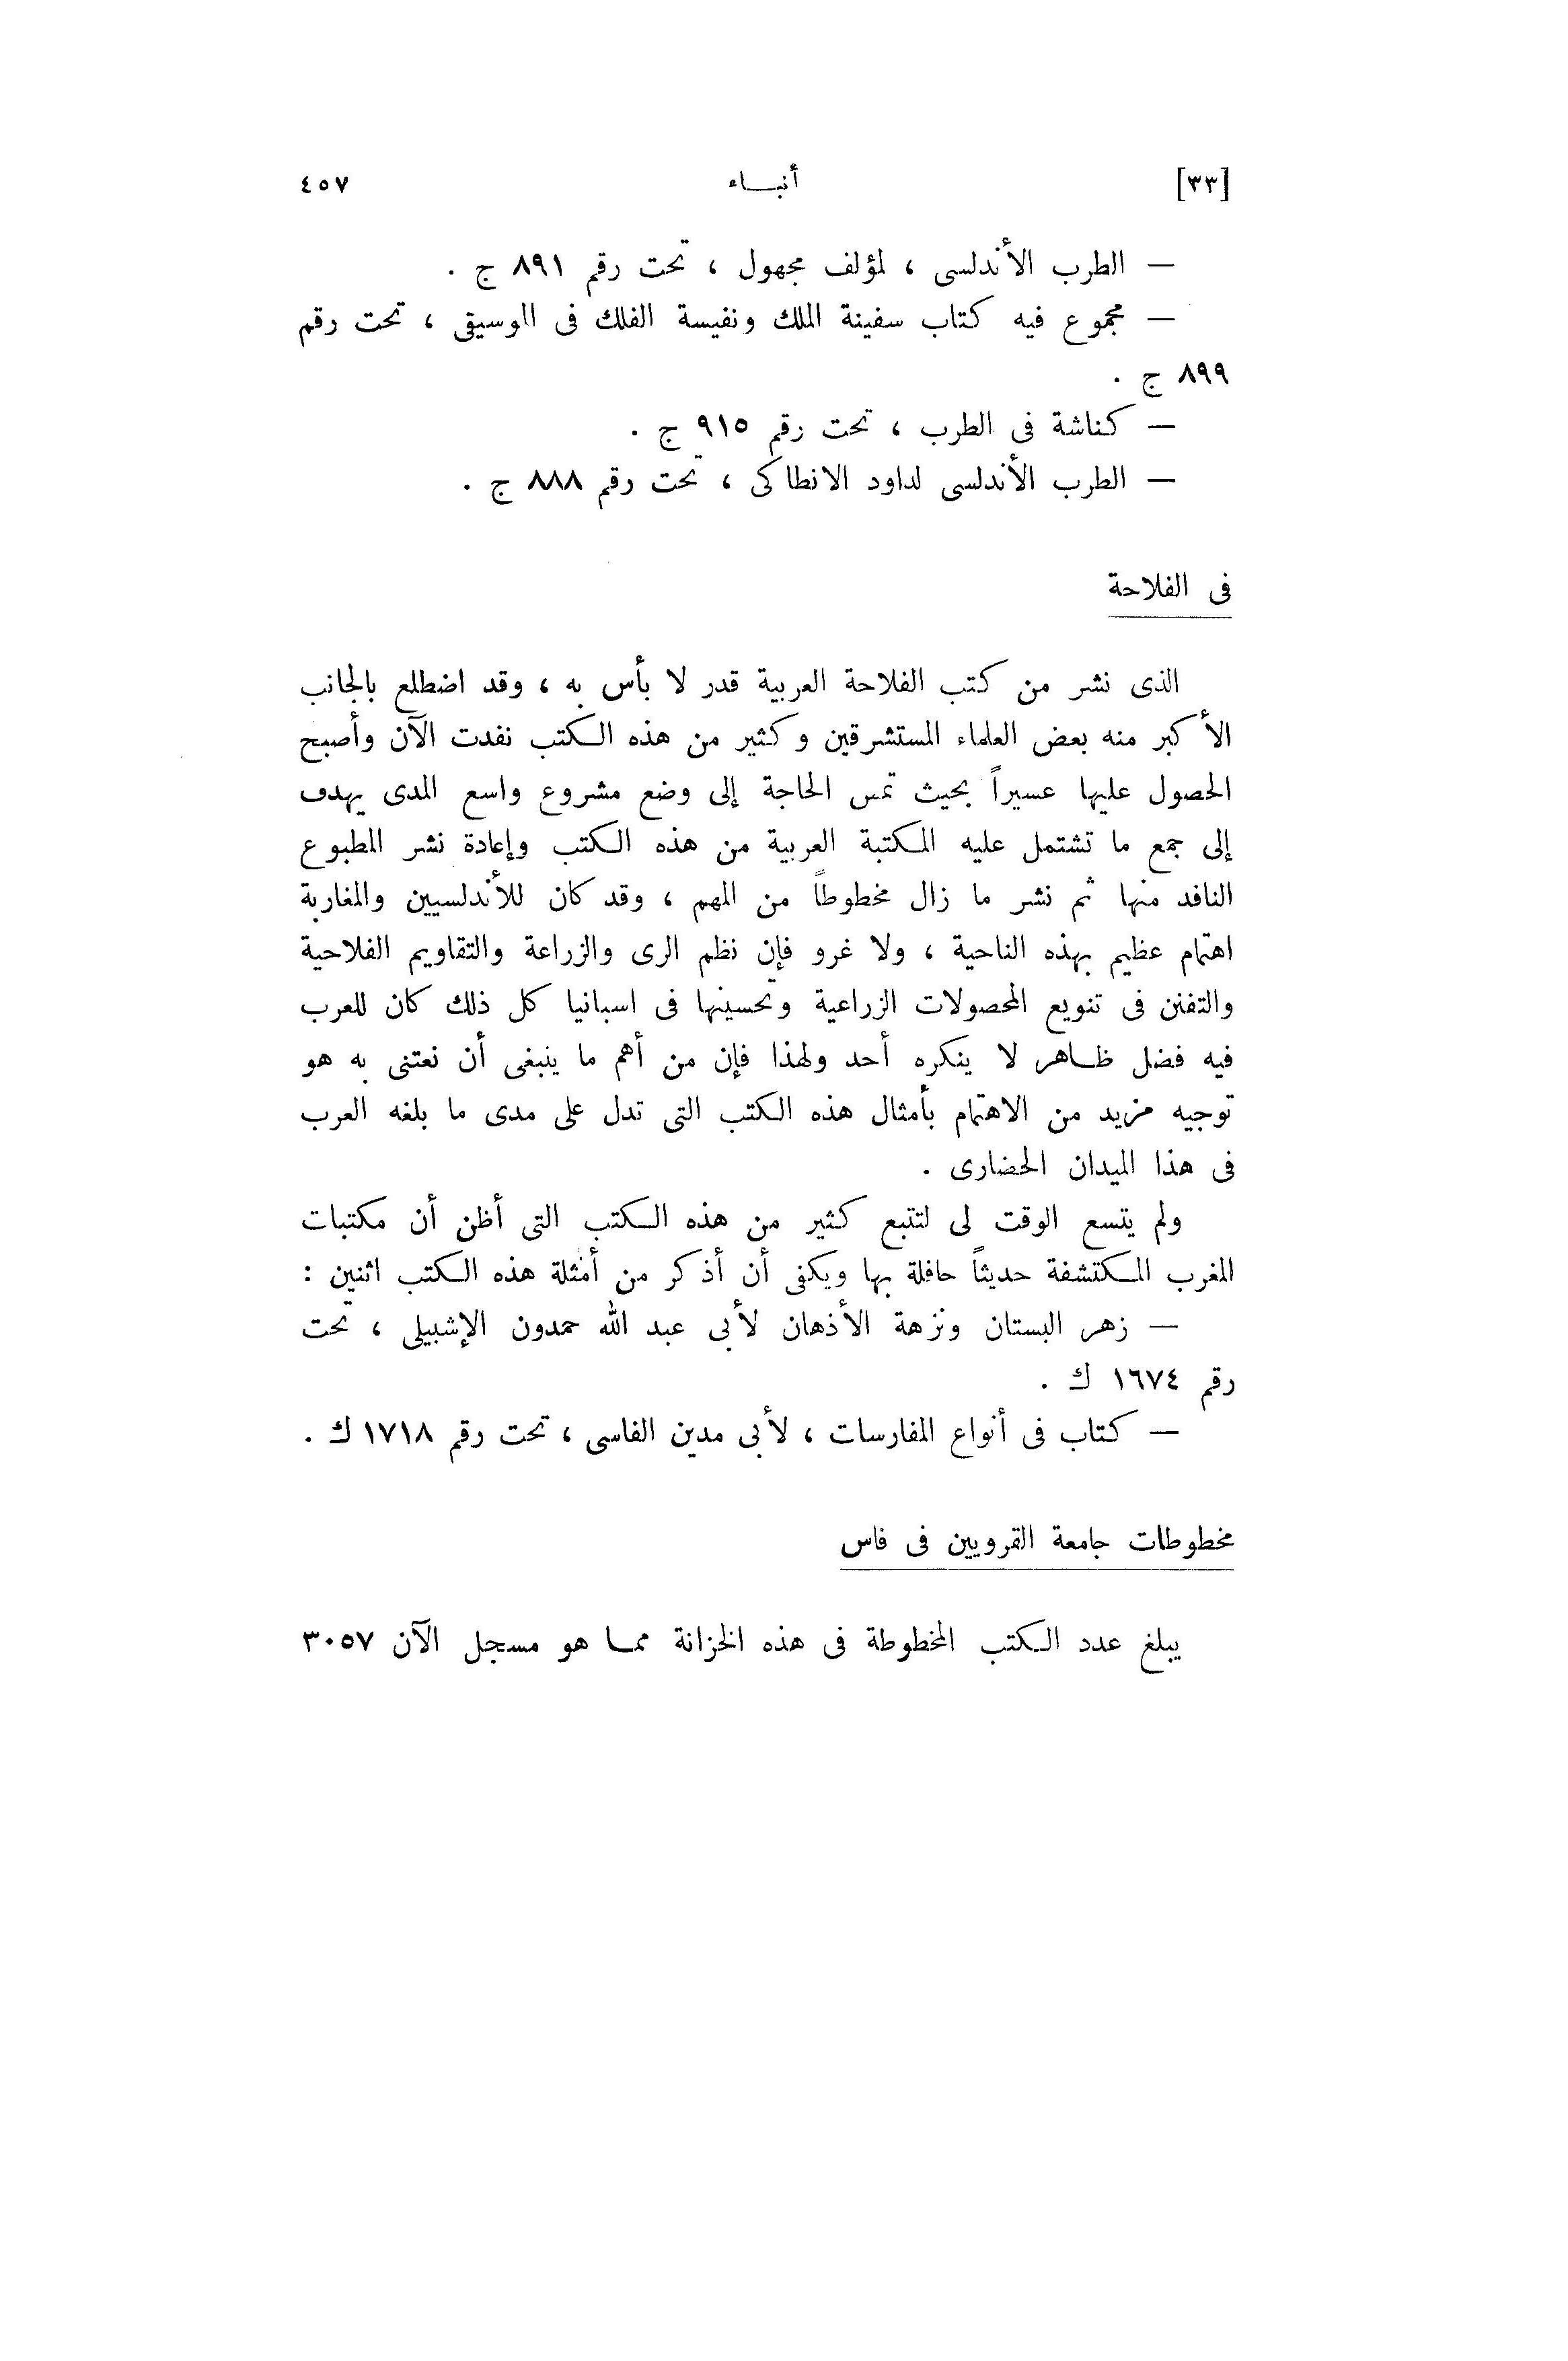 [٣٣] أنبـاء ٤٥٧
— الطرب الأندلسى ، لمؤلف مجهول ، تحت رقم ٨٩١ ج .
— مجموع فيه كتاب سفينة الملك ونفيسة الفلك فى الموسيقى ، تحت رقم
٨٩٩ ج .
— كناشة فى الطرب ، تحت رقم ٩١٥ ج .
— الطرب الأندلسى لداود الانطاكى ، تحت رقم ٨٨٨ ج .
فى الفلاحة
الذى نشر من كتب الفلاحة العربية قدر لا بأس به ، وقد اضطلع بالجانب
الأكبر منه بعض العلماء المستشرقين وكثير من هذه الكتب نفدت الآن وأصبح
الحصول عليها عسيراً بحيث تمس الحاجة إلى وضع مشروع واسع المدى يهدف
إلى جمع ما تشتمل عليه المكتبة العربية من هذه الكتب وإعادة نشر المطبوع
النافد منها ثم نشر ما زال مخطوطاً من المهم ، وقد كان للأندلسيين والمغاربة
اهتمام عظيم بهذه الناحية ، ولا غرو فإن نظم الرى والزراعة والتقاويم الفلاحية
والتفنن فى تنويع المحصولات الزراعية وتحسينها فى اسبانيا كل ذلك كان للعرب
فيه فضل ظاهر لا ينكره أحد ولهذا فإن من أهم ما ينبغى أن نعتنى به هو
توجيه مزيد من الاهتمام بأمثال هذه الكتب التى تدل على مدى ما بلغه العرب
فى هذا الميدان الحضارى .
ولم يتسع الوقت لى لتتبع كثير من هذه الكتب التى أظن أن مكتبات
المغرب المكتشفة حديثاً حافلة بها ويكفى أن أذكر من أمثلة هذه الكتب اثنين :
— زهر البستان ونزهة الأذهان لأبى عبد الله حمدون الإشبيلى ، تحت
رقم ١٦٧٤ ك .
— كتاب فى أنواع المفارسات ، لأبى مدين الفاسى ، تحت رقم ١٧١٨ ك .
مخطوطات جامعة القرويين فى فاس
يبلغ عدد الكتب المخطوطة فى هذه الخزانة ممـا هو مسجل الآن ٣٠٥٧